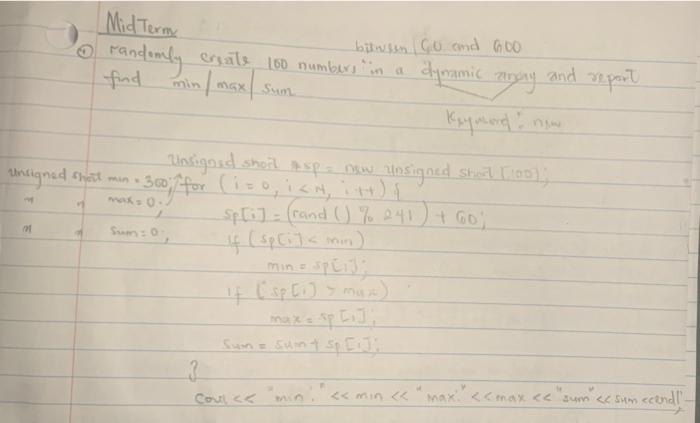 Mid Term
between 60 and 600
① randomly create 100 numbers in a dynamic array and report
find min/max/sum
Keyword: new
unsigned short *sp = new unsigned short [100];
unsigned short min = 300; for (i=0, i<N, i++) {
" " max = 0;
sp[i] = (rand () % 241) + 60;
" " sum = 0;
if (sp[i] < min)
min = sp[i];
if (sp[i] > max)
max = sp[i];
sum = sum + sp[i];
}
cout << "min:" << min << "max:" << max << "sum" << sum << endl;